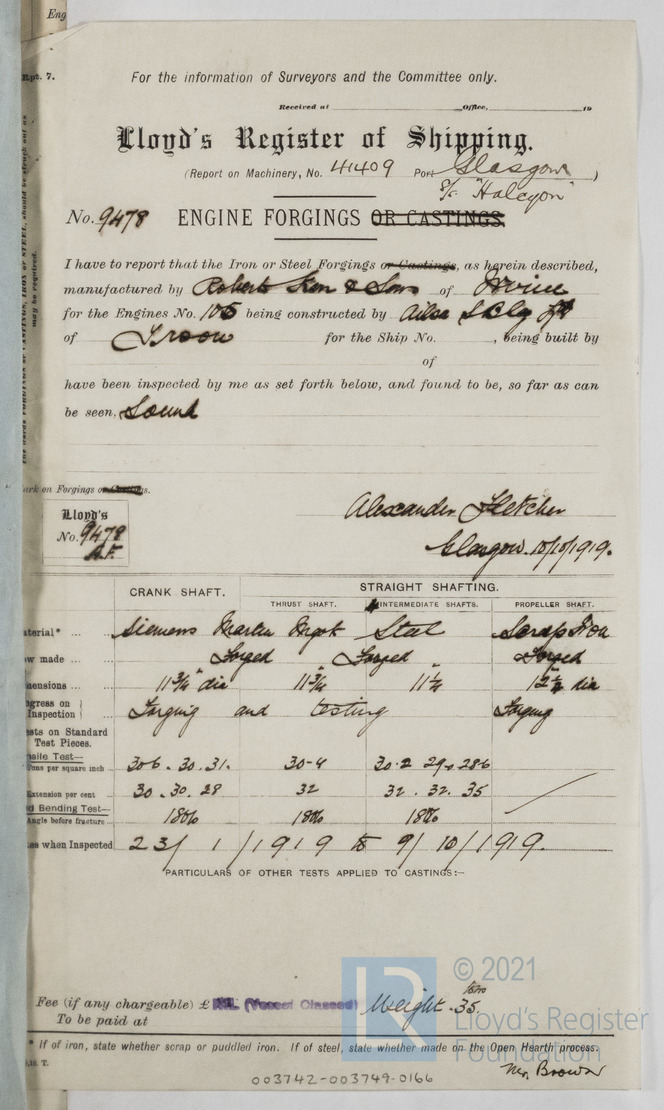 Eng
Rpt. 7.
For the information of Surveyors and the Committee only.
Received at Office, 19
Lloyd's Register of Shipping.
(Report on Machinery, No. 41409 Port Glasgow)
S/S "Halcyon"
No. 9478 ENGINE FORGINGS OR CASTINGS
I have to report that the Iron or Steel Forgings or Castings, as herein described,
manufactured by Robert & Sons of Irvine
for the Engines No. 105 being constructed by Ailsa S Bldg Ltd
of Troon for the Ship No. , being built by
of
have been inspected by me as set forth below, and found to be, so far as can
be seen, Sound
ark on Forgings or Castings.
Lloyd's
No. 9478
A.F.
Alexander Fletcher
Glasgow 10/10/1919.
CRANK SHAFT. STRAIGHT SHAFTING.
THRUST SHAFT. INTERMEDIATE SHAFTS. PROPELLER SHAFT.
aterial* Siemens Martin Ingot Steel Scrap Iron
ow made Forged " Forged " Forged
mensions 11 3/4" dia 11 3/4 11 1/4 dia
ogress on
Inspection Forging and testing Forging
sts on Standard
Test Pieces.
nsile Test—
Tons per square inch 30.6. 30. 31. 30.4 30.2 29. 28.6
Extension per cent 30. 30. 28 32 32. 32. 35
d Bending Test—
Angle before fracture 180 180 180
es when Inspected 23/1/1919 to 9/10/1919.
PARTICULARS OF OTHER TESTS APPLIED TO CASTINGS:—
Fee (if any chargeable) £ NIL (Vessel Classed) Weight 35 tons
To be paid at
* If of iron, state whether scrap or puddled iron. If of steel, state whether made on the Open Hearth process.
Mr. Brown
003742-003749-0166
LR
© 2021
Lloyd's Register
Foundation